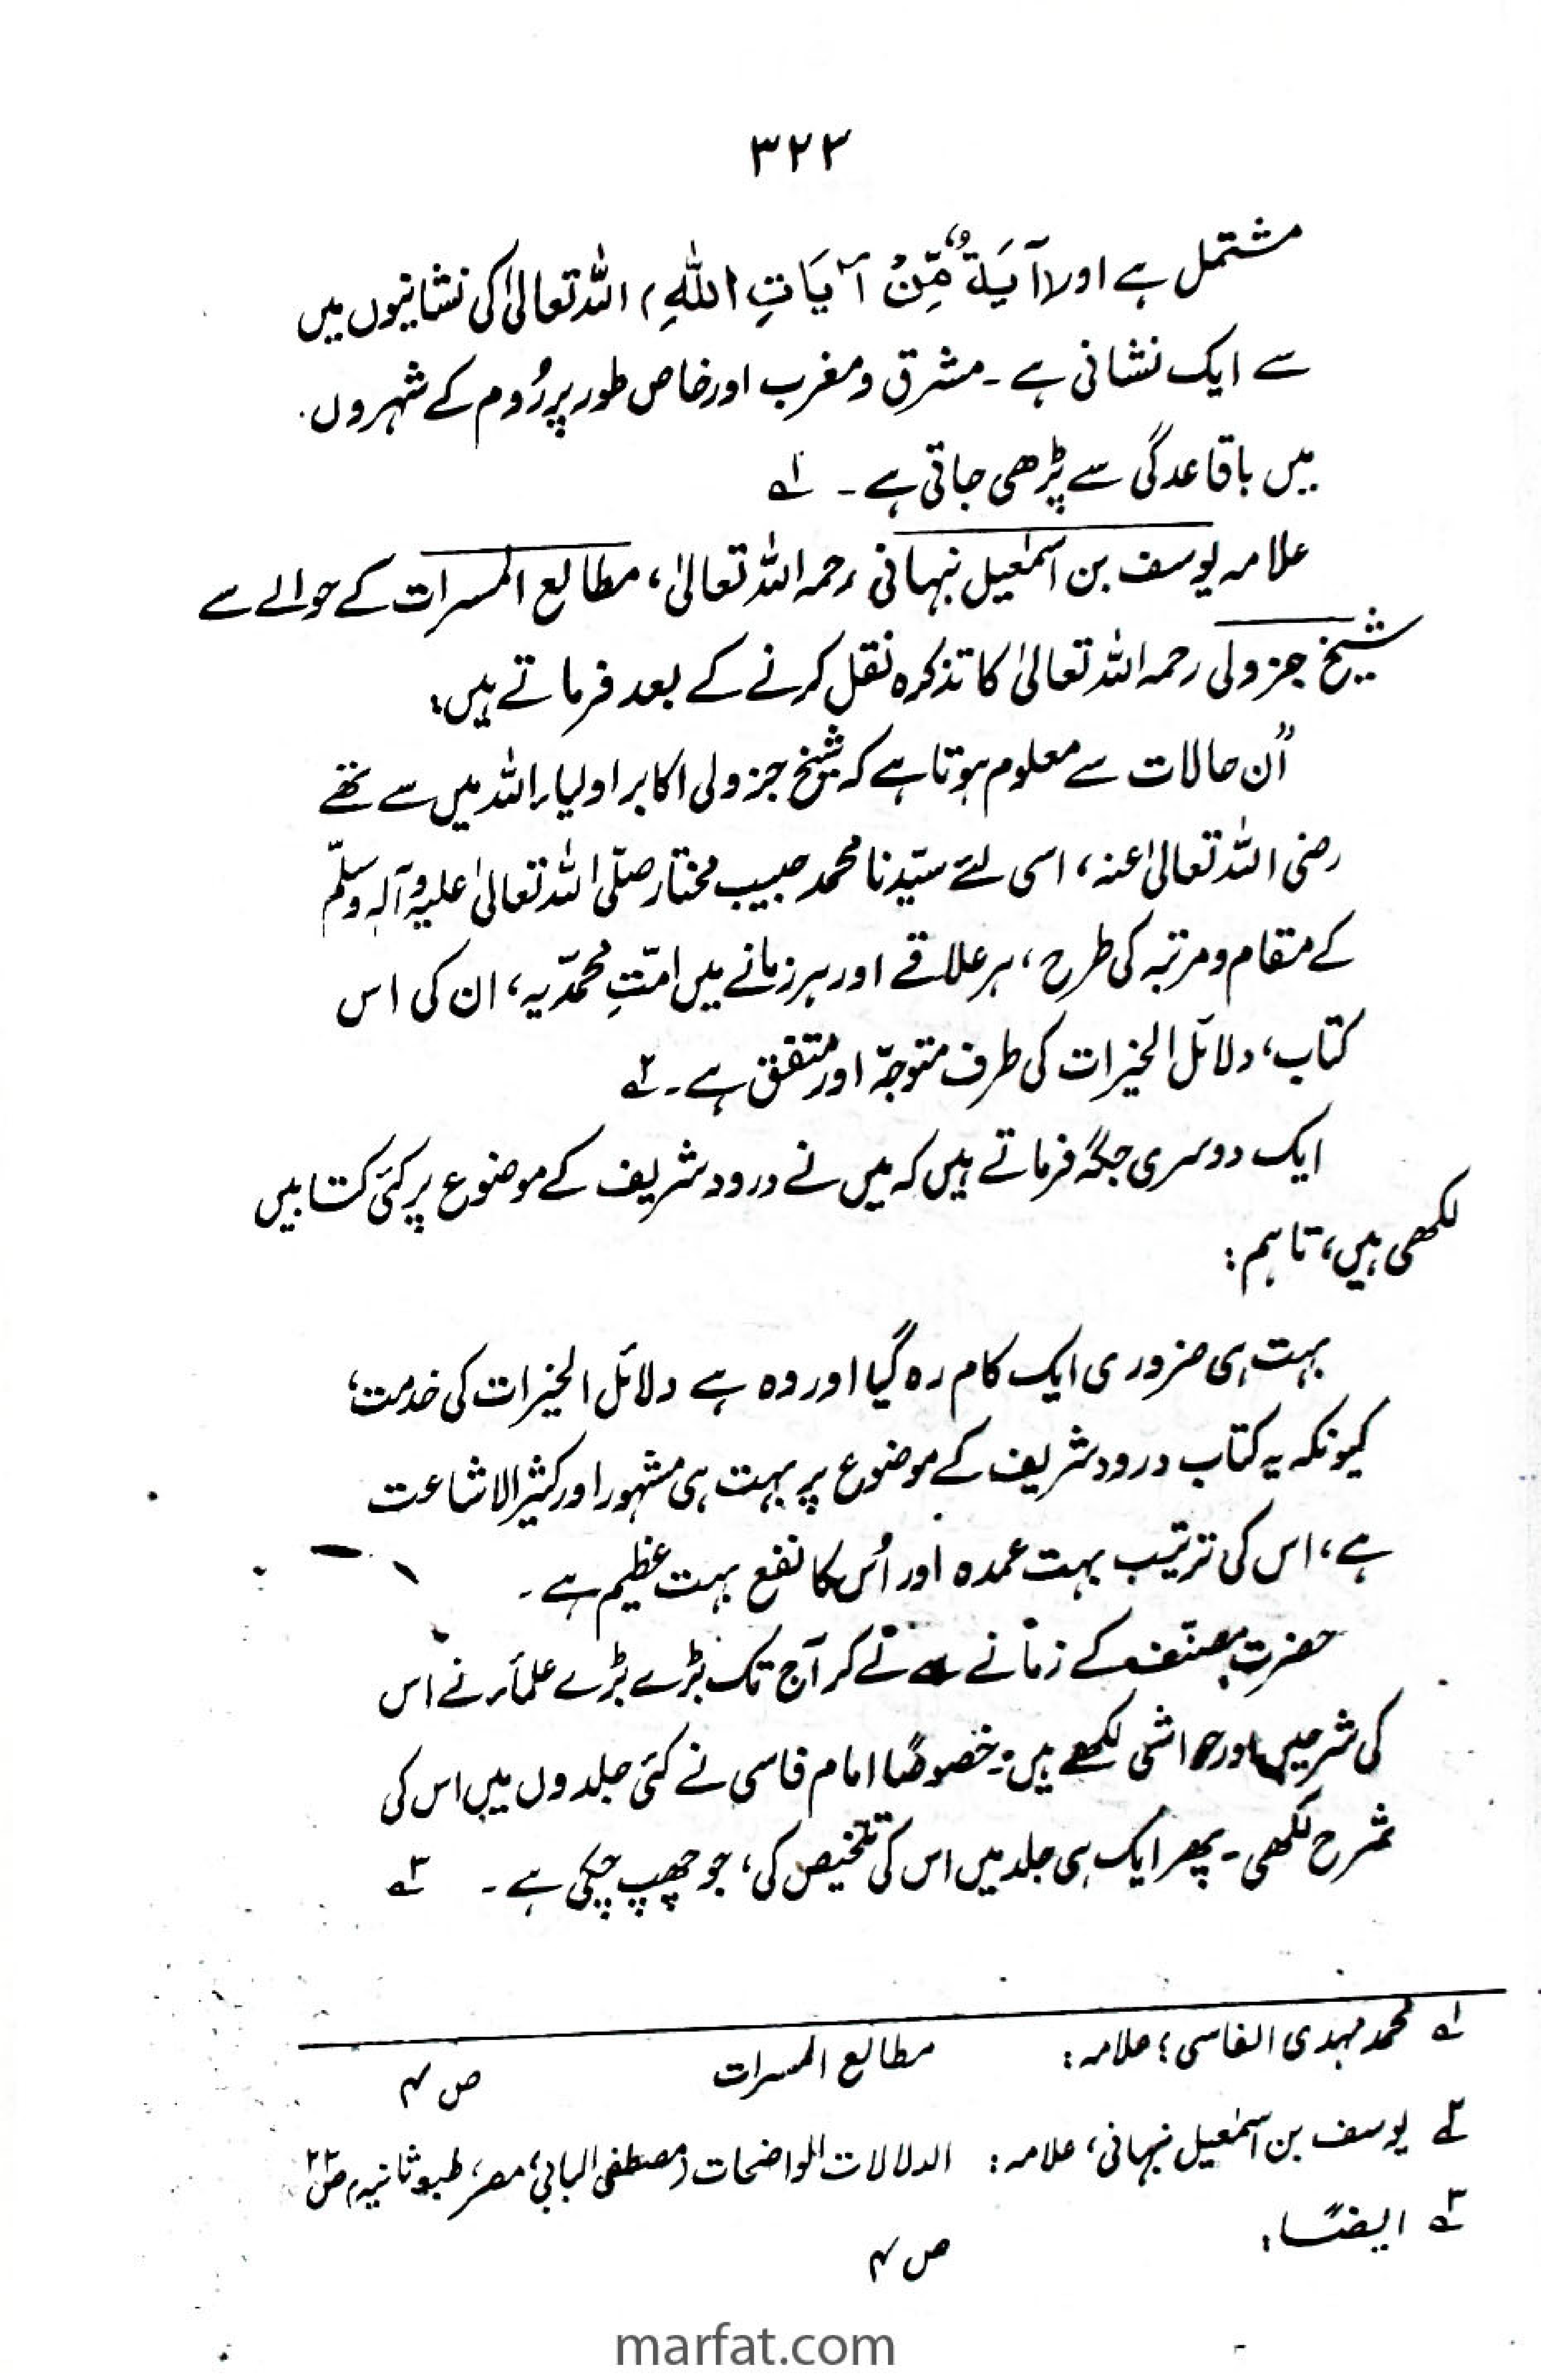 ۳۲۲
مشتمل ہے اور (آيَةٌ مِّنْ آيَاتِ اللهِ) اللہ تعالیٰ کی نشانیوں میں
سے ایک نشانی ہے۔ مشرق و مغرب اور خاص طور پر رُوم کے شہروں
میں باقاعدگی سے پڑھی جاتی ہے۔ ۱؎
علامہ یوسف بن اسمٰعیل نبہانی رحمہ اللہ تعالیٰ، مطالع المسرات کے حوالے سے
شیخ جزولی رحمہ اللہ تعالیٰ کا تذکرہ نقل کرنے کے بعد فرماتے ہیں:
"اُن حالات سے معلوم ہوتا ہے کہ شیخ جزولی اکابر اولیاء اللہ میں سے تھے
رضی اللہ تعالیٰ عنہ، اسی لئے سیّدنا محمد حبیب مختار صلّی اللہ تعالیٰ علیہ وآلہٖ وسلّم
کے مقام و مرتبہ کی طرح، ہر علاقے اور ہر زمانے میں امّتِ محمّدیہ، ان کی اس
کتاب، دلائل الخیرات کی طرف متوجّہ اور متفق ہے۔ ۲؎
ایک دوسری جگہ فرماتے ہیں کہ میں نے درود شریف کے موضوع پر کئی کتابیں
لکھی ہیں، تاہم:
بہت ہی ضروری ایک کام رہ گیا اور وہ ہے دلائل الخیرات کی خدمت،
کیونکہ یہ کتاب درود شریف کے موضوع پر بہت ہی مشہور اور کثیر الاشاعت
ہے، اس کی ترتیب بہت عمدہ اور اُس کا نفع بہت عظیم ہے۔
حضرتِ مصنّف کے زمانے سے لے کر آج تک بڑے بڑے علماء نے اس
کی شرحیں اور حواشی لکھے ہیں۔ خصوصًا امام فاسی نے کئی جلدوں میں اس کی
شرح لکھی۔ پھر ایک ہی جلد میں اس کی تلخیص کی، جو چھپ چکی ہے۔ ۳؎
۱؎ محمد مہدی الفاسی، علامہ: مطالع المسرات ص ۴
۲؎ یوسف بن اسمٰعیل نبہانی، علامہ: الدلالات الواضحات (مصطفی البابی، مصر، طبع ثانیہ) ص ۲۲
۳؎ ایضًا: ص ۴
marfat.com